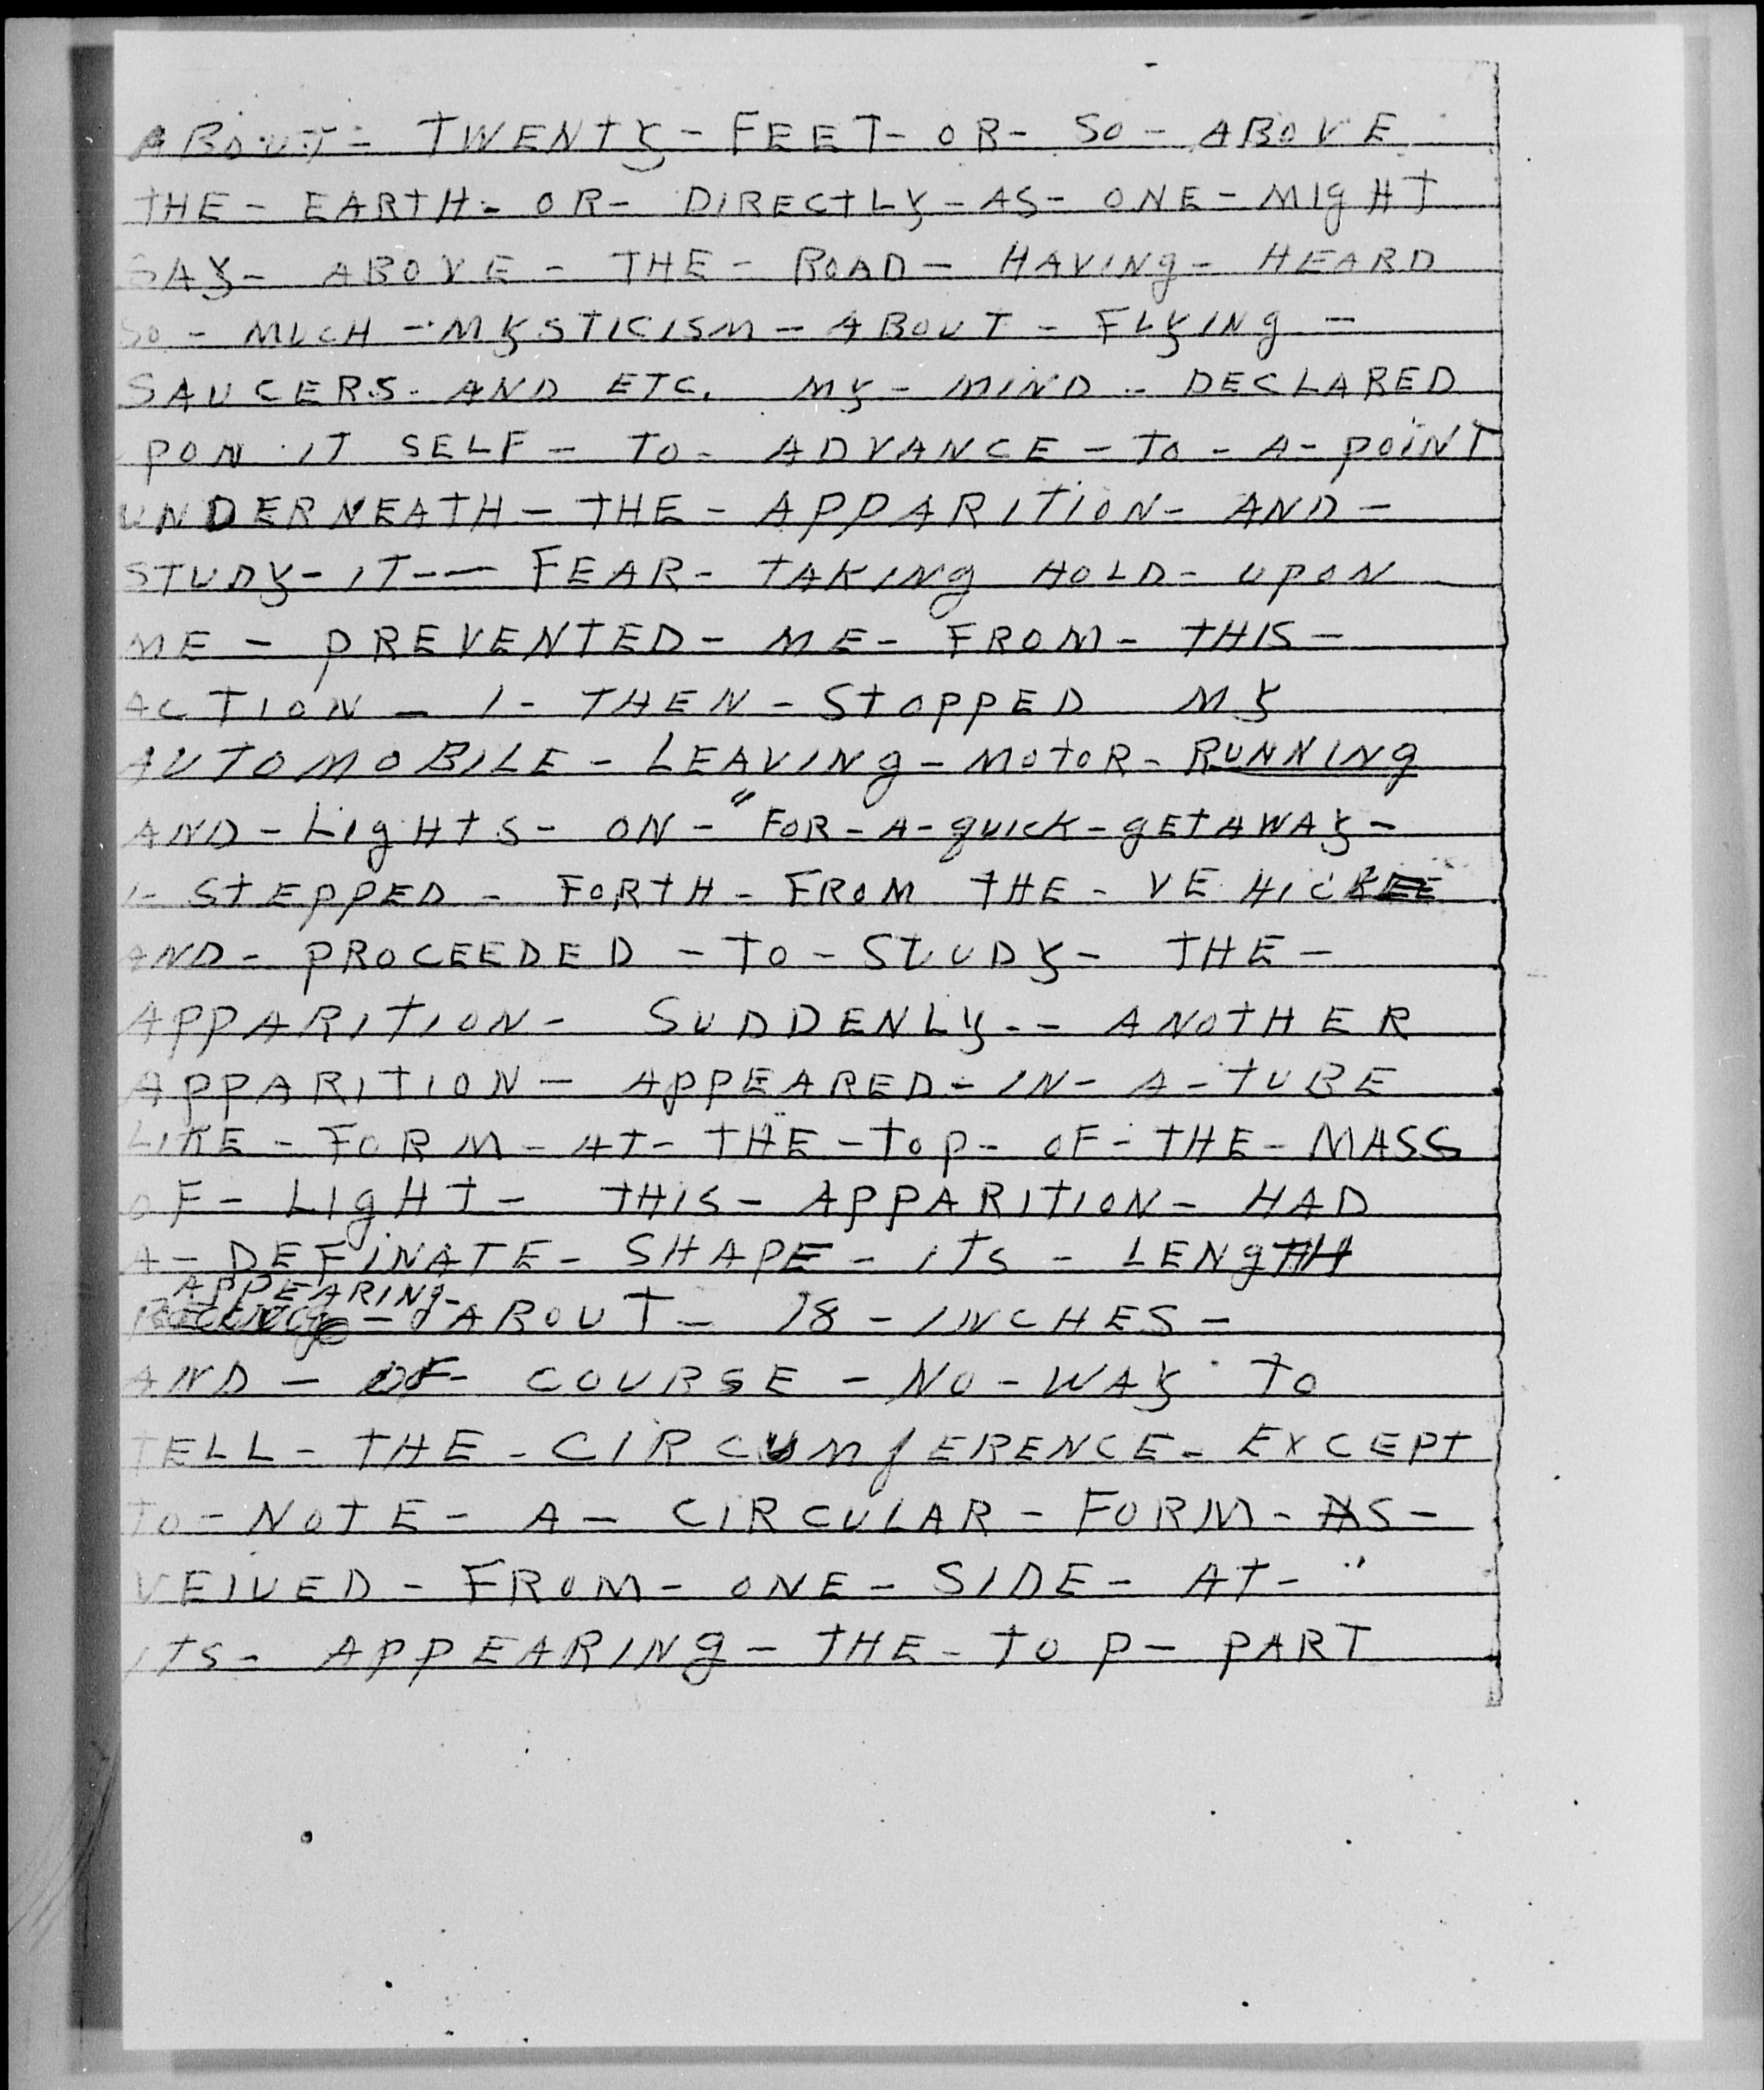 ABOUT - TWENTY - FEET - OR - SO - ABOVE
THE - EARTH - OR - DIRECTLY - AS - ONE - MIgHT
SAY - ABOVE - THE - ROAD - HAVINg - HEARD
SO - MUCH - MYSTICISM - ABOUT - FLYINg -
SAUCERS - AND ETC. MY - MIND - DECLARED
UPON IT SELF - TO - ADVANCE - TO - A - POINT
UNDERNEATH - THE - APPARITION - AND -
STUDY - IT -- FEAR - TAKINg HOLD - UPON
ME - PREVENTED - ME - FROM - THIS -
ACTION - I - THEN - STOPPED MY
AUTOMOBILE - LEAVINg - MOTOR - RUNNINg
AND - LIgHTS - ON - "FOR - A - qUICK - gETAWAY -
I - STEPPED - FORTH - FROM THE - VE HICLE
AND - PROCEEDED - TO - STUDY - THE -
APPARITION - SUDDENLY -- ANOTHER
APPARITION - APPEARED - IN - A - TUBE
LIKE - FORM - AT - THE - TOP - OF - THE - MASS
OF - LIgHT - THIS - APPARITION - HAD
A - DEFINATE - SHAPE - ITS - LENgTH
APPEARINg -
- ABOUT - 18 - INCHES -
AND - OF - COURSE - NO - WAY TO
TELL - THE - CIRCUMfERENCE - EXCEPT
TO - NOTE - A - CIRCULAR - FORM - AS -
VEIUED - FROM - ONE - SIDE - AT - "
ITS - APPEARINg - THE - TOP - PART